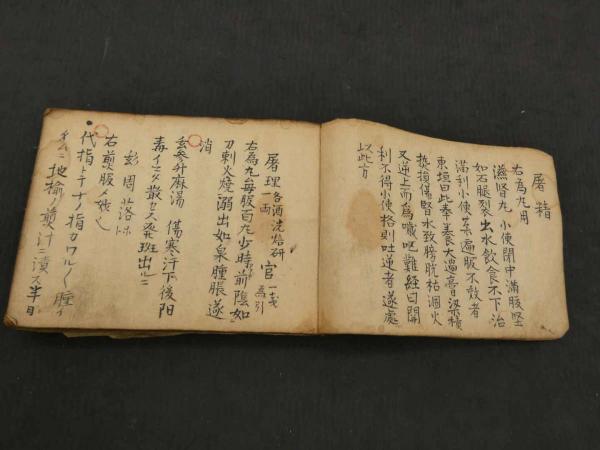 屠精
右為丸用
滋腎丸 小便閉中滿腹堅
如石腿裂出水飲食不下治
滿利小便系遍服不效者
東垣曰此奉養大過膏粱積
熱損傷腎水致膀胱枯涸火
又逆上而為噦呃難經曰關
利不得小便格則吐逆者遂處
以此方
屠理 各酒洗焙研 一兩 官 一戔 為引
右為丸每服百丸少時前陰如
刀刺火燒溺出如泉腫脹遂
消
玄參升麻湯 傷寒汗下後陽
毒イマタ散セス発班出ルニ
彭周
右煎服メ
代指トテ十ノ指カワル〱腫イ
タムニ地榆ノ煎汁ニ漬ス半日